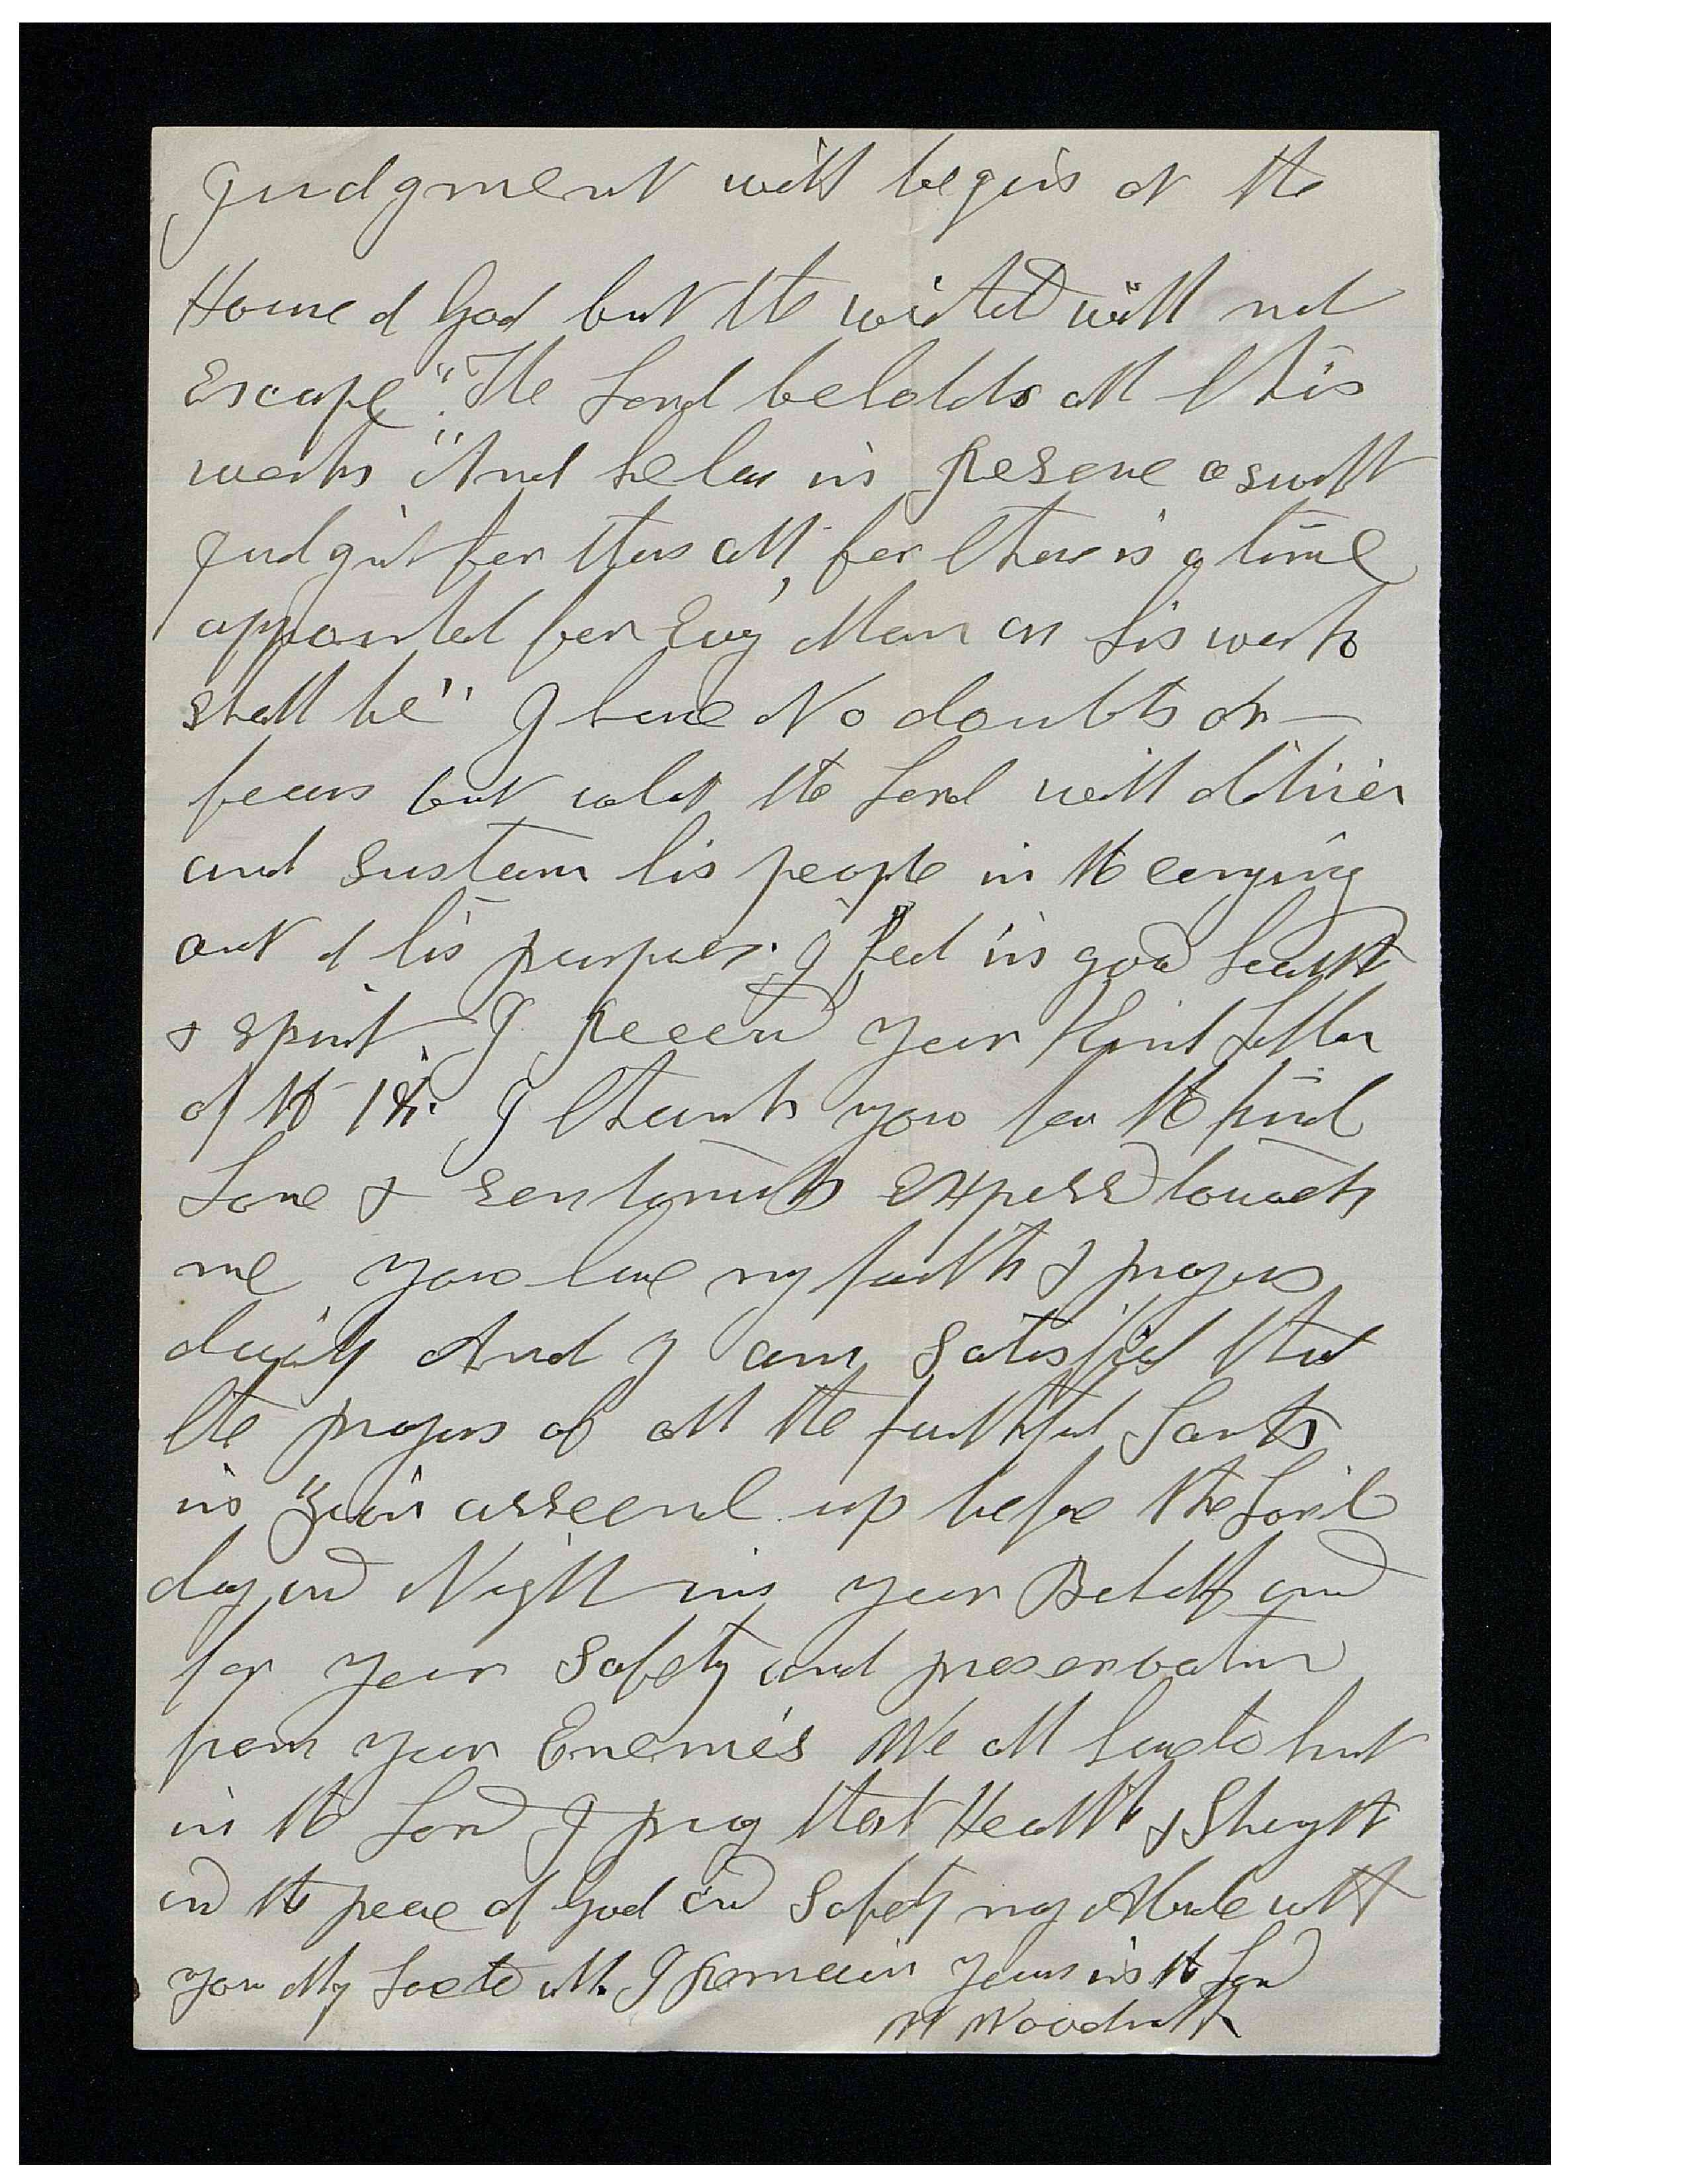 Judgment will begin at the
House of God but the wicked will not
Escape". The Lord beholds all this
works "And he has in Reserve a swift
Judgmt for them all, for there is a time
appointed for Evry Man as his works
shall be" I have No doubts or
fears but what the Lord will deliver
and sustain his people in the carrying
out of his purposes. I feel in good health
& spirit. I Receivd your Kind Letter
of the I thank you for the kind
Love & sentiments Expressd towards
me you have my faith & prayers
daily And I am Satisfied that
the prayers of all the faithful Saints
in Zion asscend up before the Lord
day and Night in your Behalf and
for your Safety and preservation
from your Enemies We all have to trust
in the Lord I pray that Health & Strength
and the peace of God and Safety may Abide with
you My Love to all. I Remain Yours in the Lord
W Woodruff